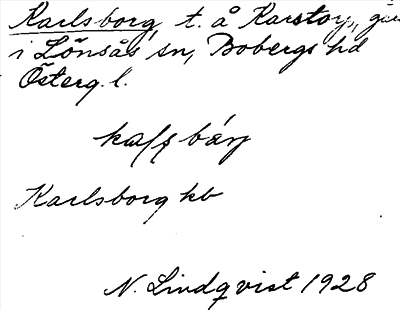 Karlsborg, t. å Karstorp, går
i Lönsås sn, Bobergs hd
Österg. l.
Karlsborg kb
N. Lindqvist 1928